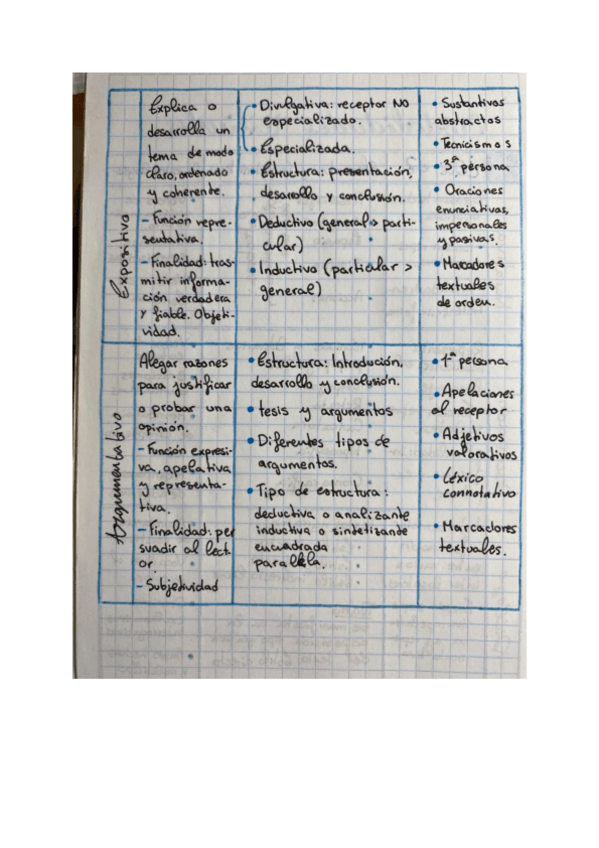 Expositivo
Explica o
desarrolla un
tema de modo
claro, ordenado
y coherente.
- Función repre-
sentativa.
- Finalidad: tras-
mitir informa-
ción verdadera
y fiable. Objeti-
vidad.
• Divulgativa: receptor NO
especializado.
• Especializada.
• Estructura: presentación,
desarrollo y conclusión.
• Deductivo (general > parti-
cular)
• Inductivo (particular >
general)
• Sustantivos
abstractos
• Tecnicismos
• 3ª persona
• Oraciones
enunciativas,
impersonales
y pasivas.
• Marcadores
textuales
de orden.
Argumentativo
Alegar razones
para justificar
o probar una
opinión.
- Función expresi-
va, apelativa
y representa-
tiva.
- Finalidad: per
suadir al lect-
or.
- Subjetividad
• Estructura: Introdución,
desarrollo y conclusión.
• tesis y argumentos
• Diferentes tipos de
argumentos.
• Tipo de estructura:
deductiva o analizante
inductiva o sintetizande
encuadrada
paralela.
• 1ª persona
• Apelaciones
al receptor
• Adjetivos
valorativos
• Léxico
connotativo
• Marcadores
textuales.